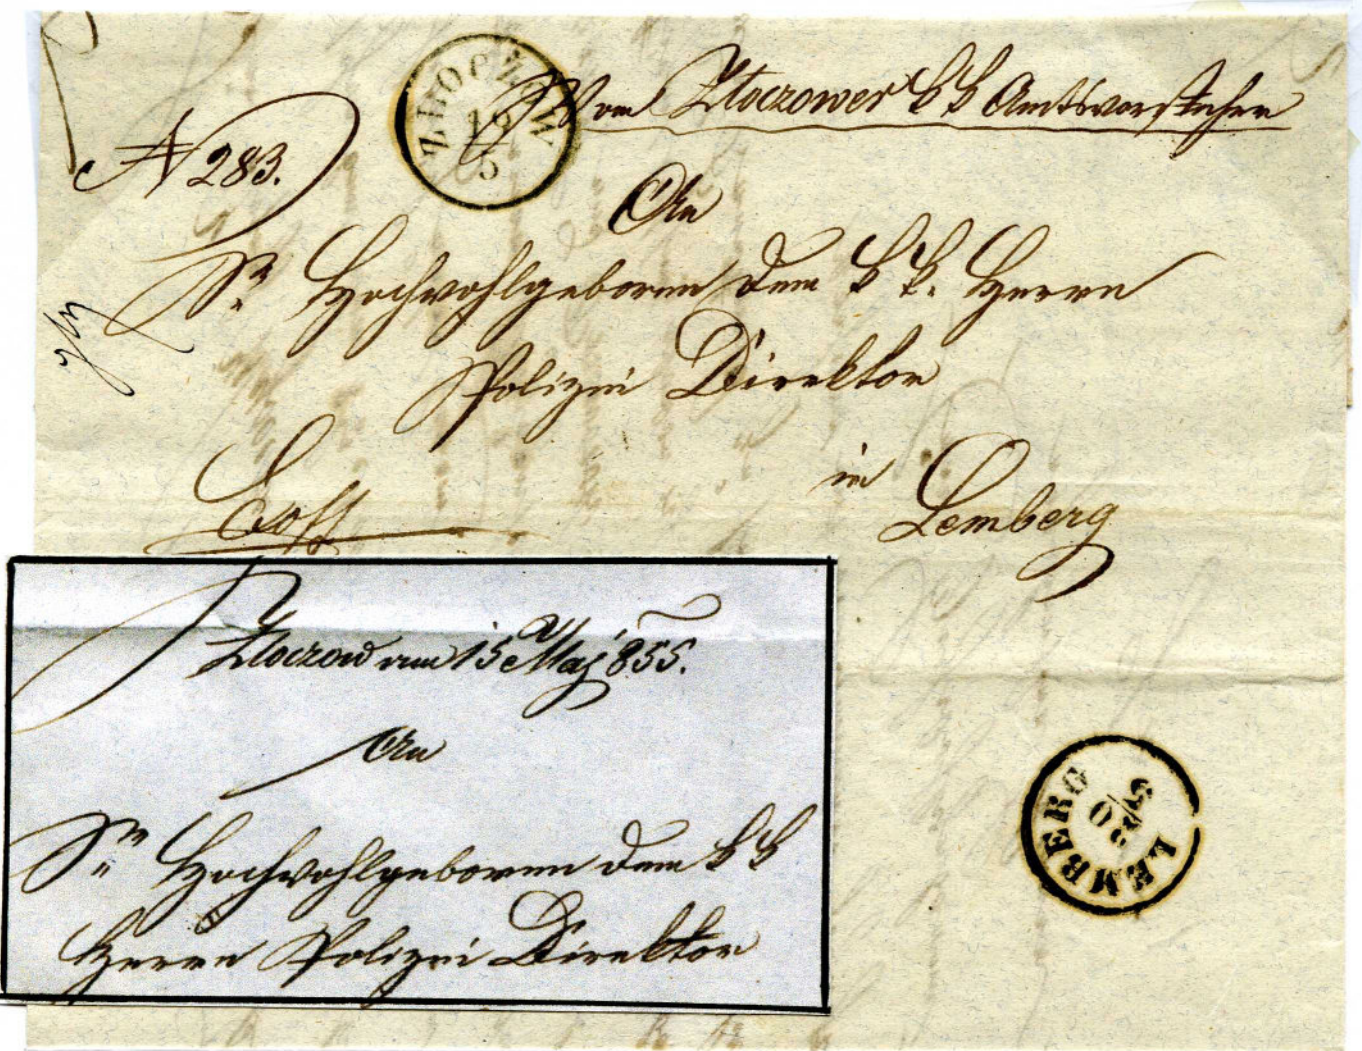 ZLOCZOW
19
5
Vom Zloczower k k Amtsvorsteher
N 283.
An
Sr Hochwohlgeboren dem k k. Herrn
Polizei Direktor
in
Lemberg
Zloczow am 15 Maj 855.
An
Sr Hochwohlgeboren dem k k
Herrn Polizei Direktor
LEMBERG
20/5